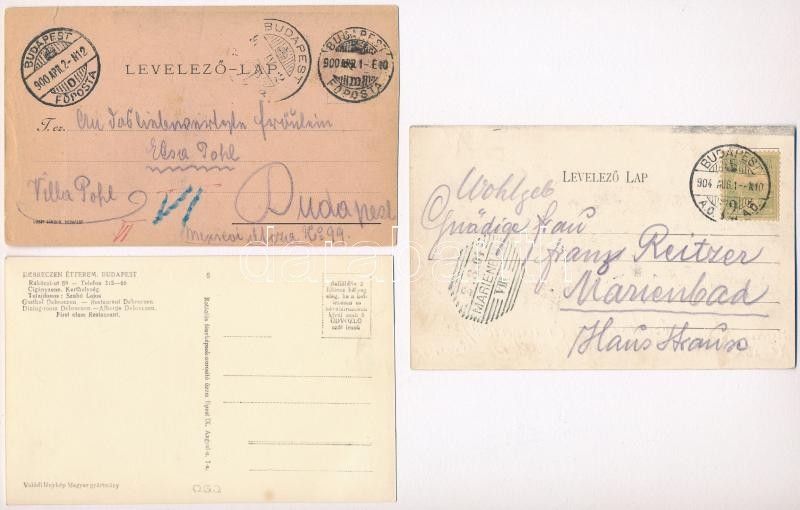 BUDAPEST
900 APR. 2-N12
FŐPOSTA
BUDAPEST
BUDAPEST
900 APR. 1-E10
FŐPOSTA
LEVELEZŐ-LAP
T. cz. An das liebenswerteste Fräulein
Elsa Pohl
Villa Pohl
VI
VI
Budapest
No 99.
DEBRECZEN ÉTTEREM, BUDAPEST
Rákóczi-ut 89 — Telefon
Cigányzene. Kerthelység.
Tulajdonos: Szabó Lajos
Gasthof Debreczen. — Restaurant Debreczen
Dining-room Debreczen — Albergo Debreczen.
First class Restaurant.
Valódi fénykép Magyar gyártmány
ÜDVÖZLŐ
szót írunk
LEVELEZŐ LAP
BUDAPEST
904 AUG. 1-N10
Wohlgeb
Gnädige Frau
Franz Reitzer
Marienbad
Haus Strauss
MARIENB
darabanth